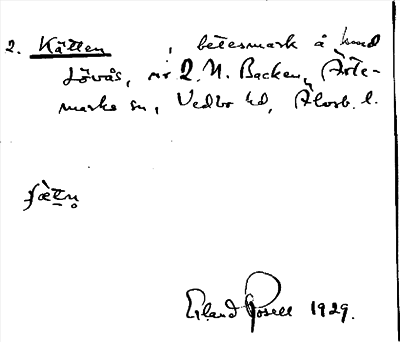 2. Kätten, betesmark å hmd
Lövås, nr 2. N. Backen, Ärte-
marks sn, Vedbo hd, Älvsb. l.
Erland Rosell 1929.